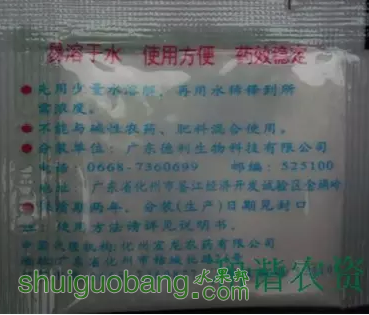 易溶于水 使用方便 药效稳定
●先用少量水溶解，再用水稀释到所
需浓度。
●不能与碱性农药、肥料混合使用。
●分装单位：广东德利生物科技有限公司
电话：0668-7360699 邮编：525100
地址：广东省化州市鉴江经济开发试验区金埚岭
●保质期两年，分装(生产)日期见封口
注：使用方法请详见说明书。
化州宜龙农药有限公司
广东省化州市
水果邦
shuiguobang.com
谐农资